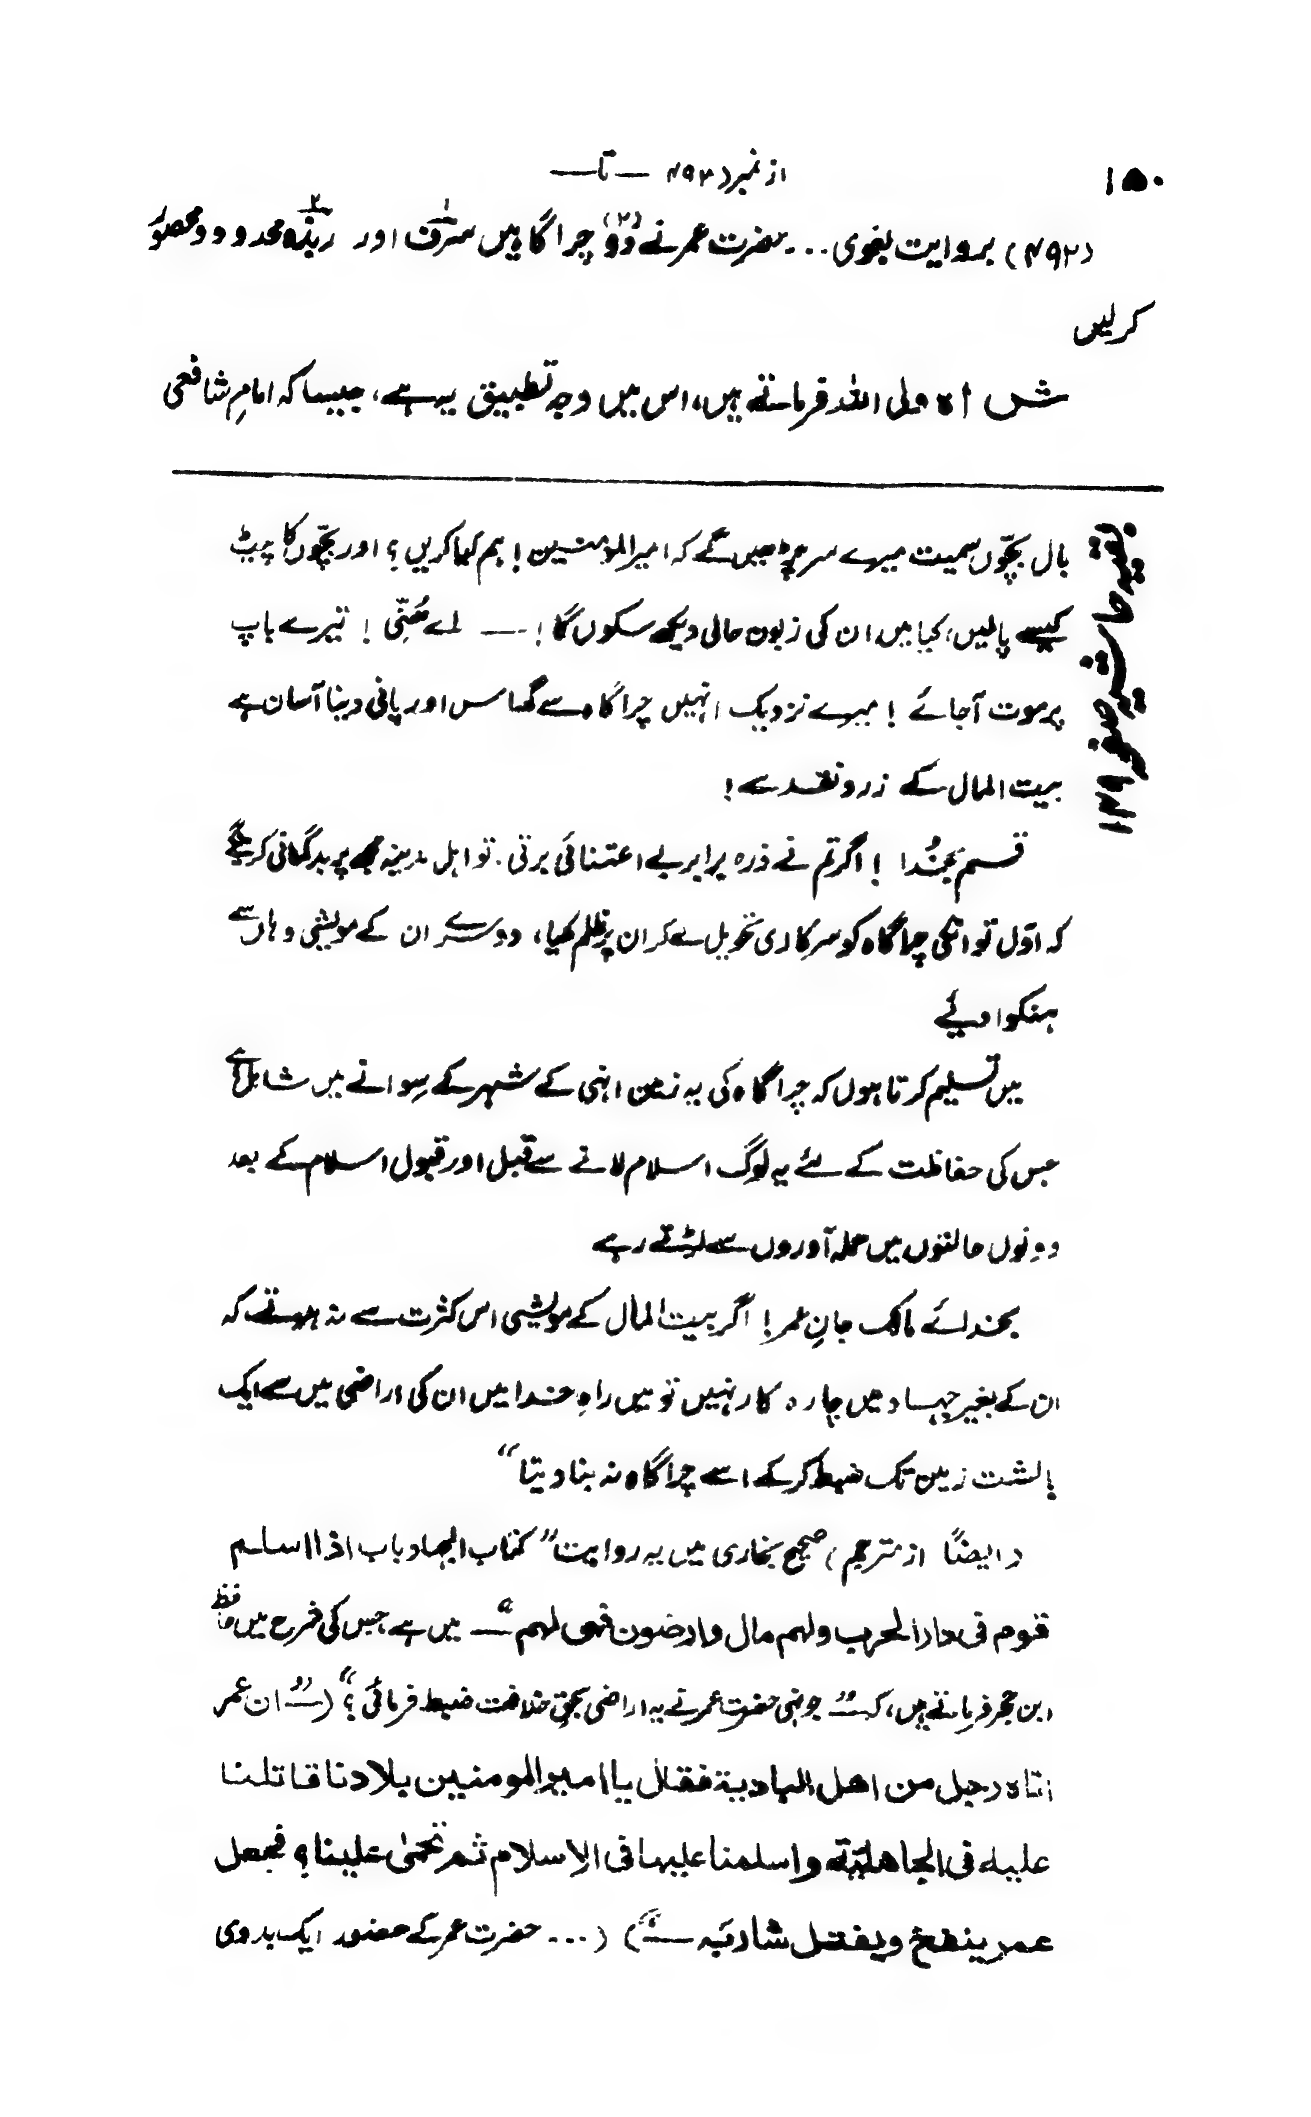 ۱۵۰
از نمبر (۴۹۲ — تا —
(۴۹۲) بروایت بغوی ... حضرت عمر نے دو (۲) چراگاہیں سرف۱ اور ربذہ۲ محدود و محصور
کر لیں
شاہ ولی اللہ فرماتے ہیں، اس میں وجہ تطبیق یہ ہے، جیسا کہ امامِ شافعی
بقیہ حاشیہ صفحہ ۱۴۹
بال بچّوں سمیت میرے سر چڑھیں گے کہ امیر المؤمنین! ہم کیا کریں؟ اور بچّوں کا پیٹ
کیسے پالیں، کیا میں ان کی زبون حالی دیکھ سکوں گا! — اے ھُنَیّ! تیرے باپ
پر موت آجائے! میرے نزدیک انہیں چراگاہ سے گھاس اور پانی دینا آسان ہے
بیت المال کے زر و نقد سے!
قسم بخُدا! اگر تم نے ذرہ برابر بے اعتنائی برتی. تو اہل مدینہ مجھ پر بدگمانی کریں گے
کہ اوّل تو انکی چراگاہ کو سرکاری تحویل لے کر ان پر ظلم کیا، دوسرے ان کے مویشی وہاں سے
ہنکوا دیئے
میں تسلیم کرتا ہوں کہ چراگاہ کی یہ زمین انہی کے شہر کے سِوانے میں شامل ہے
جس کی حفاظت کے لئے یہ لوگ اسلام لانے سے قبل اور قبول اسلام کے بعد
دونوں حالتوں میں حملہ آوروں سے لڑتے رہے
بخدائے مالک جانِ عمر! اگر بیت المال کے مویشی اس کثرت سے نہ ہوتے کہ
ان کے بغیر جہاد میں چارہ کار نہیں تو میں راہِ خدا میں ان کی اراضی میں سے ایک
بالشت زمین تک ضبط کر کے اسے چراگاہ نہ بنا دیتا”
(ایضاً از مترجم) صحیح بخاری میں یہ روایت ”کتاب الجہاد باب اذا اسلم
قوم فی دار الحرب ولہم مال وارضون فہی لہم“ — میں ہے جس کی شرح میں حافظ
ابن حجر فرماتے ہیں، کہ — ”جونہی حضرت عمر نے یہ اراضی بحق خلافت ضبط فرمائی؟“ (— ”ان عمر
اتاہ رجل من اھل البادیۃ فقال یا امیر المومنین بلادنا قاتلنا
علیہ فی الجاھلیّۃ واسلمنا علیہا فی الاسلام ثم تحمیٰ علینا؟ فجعل
عمر ینفخ ویفتل شاربَہ —“) (... حضرت عمر کے حضور ایک بدوی